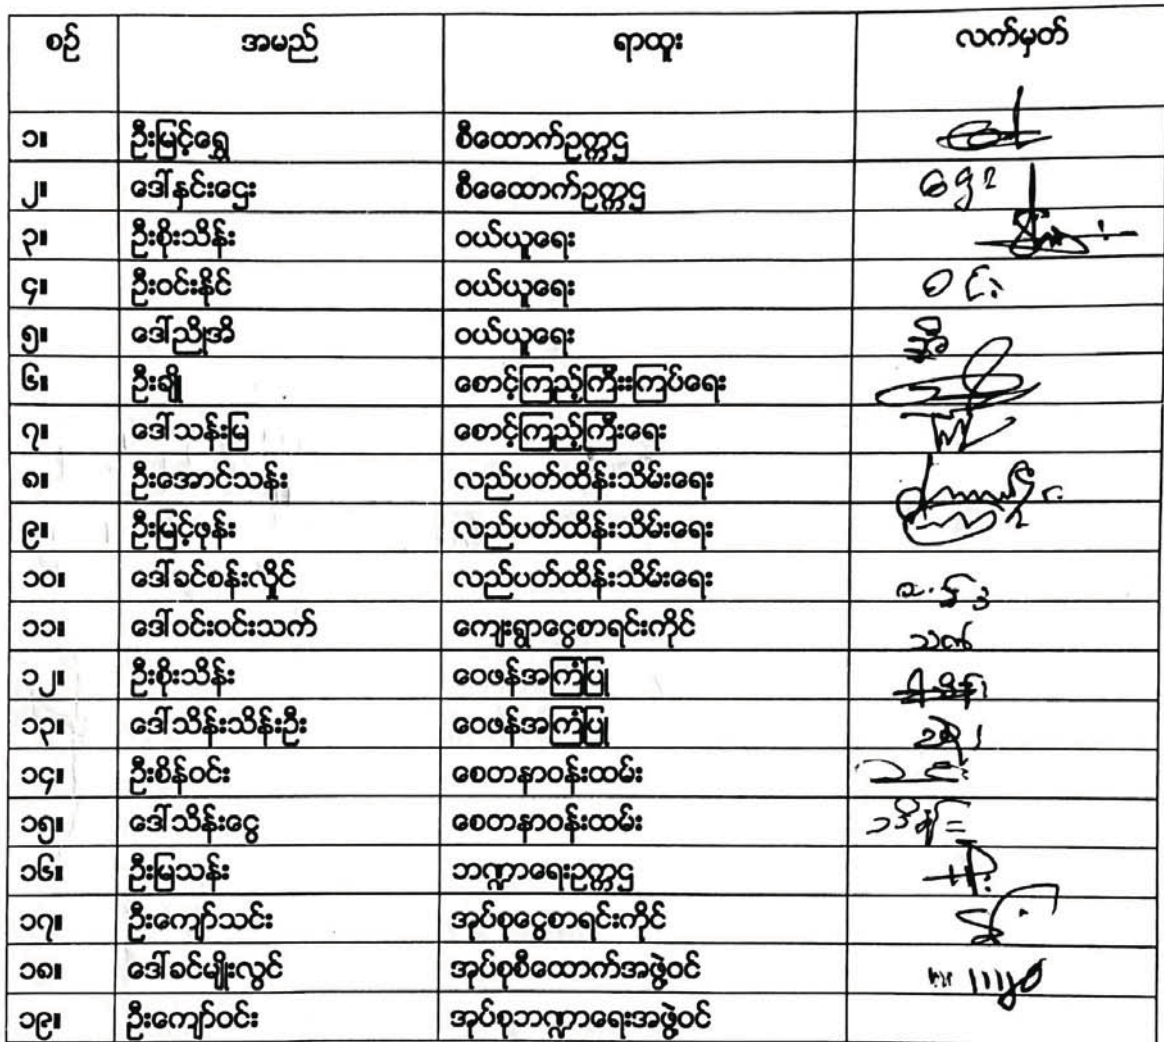 စဉ် အမည် ရာထူး လက်မှတ်
၁။ ဦးမြင့်ရွှေ စီထောက်ဥက္ကဌ
၂။ ဒေါ်နှင်းဌေး စီထောက်ဥက္ကဌ
၃။ ဦးစိုးသိန်း ဝယ်ယူရေး
၄။ ဦးဝင်းနိုင် ဝယ်ယူရေး ဝင်း
၅။ ဒေါ်ညိုအိ ဝယ်ယူရေး အိ
၆။ ဦးချို စောင့်ကြည့်ကြီးးကြပ်ရေး
၇။ ဒေါ်သန်းမြ စောင့်ကြည့်ကြီးရေး
၈။ ဦးအောင်သန်း လည်ပတ်ထိန်းသိမ်းရေး
၉။ ဦးမြင့်ဖုန်း လည်ပတ်ထိန်းသိမ်းရေး
၁၀။ ဒေါ်ခင်စန်းလှိုင် လည်ပတ်ထိန်းသိမ်းရေး
၁၁။ ဒေါ်ဝင်းဝင်းသက် ကျေးရွာငွေစာရင်းကိုင် သက်
၁၂။ ဦးစိုးသိန်း ဝေဖန်အကြံပြု
၁၃။ ဒေါ်သိန်းသိန်းဦး ဝေဖန်အကြံပြု
၁၄။ ဦးစိန်ဝင်း စေတနာဝန်းထမ်း
၁၅။ ဒေါ်သိန်းငွေ စေတနာဝန်းထမ်း
၁၆။ ဦးမြသန်း ဘဏ္ဍာရေးဥက္ကဌ
၁၇။ ဦးကျော်သင်း အုပ်စုငွေစာရင်းကိုင်
၁၈။ ဒေါ်ခင်မျိုးလွင် အုပ်စုစီထောက်အဖွဲ့ဝင်
၁၉။ ဦးကျော်ဝင်း အုပ်စုဘဏ္ဍာရေးအဖွဲ့ဝင်